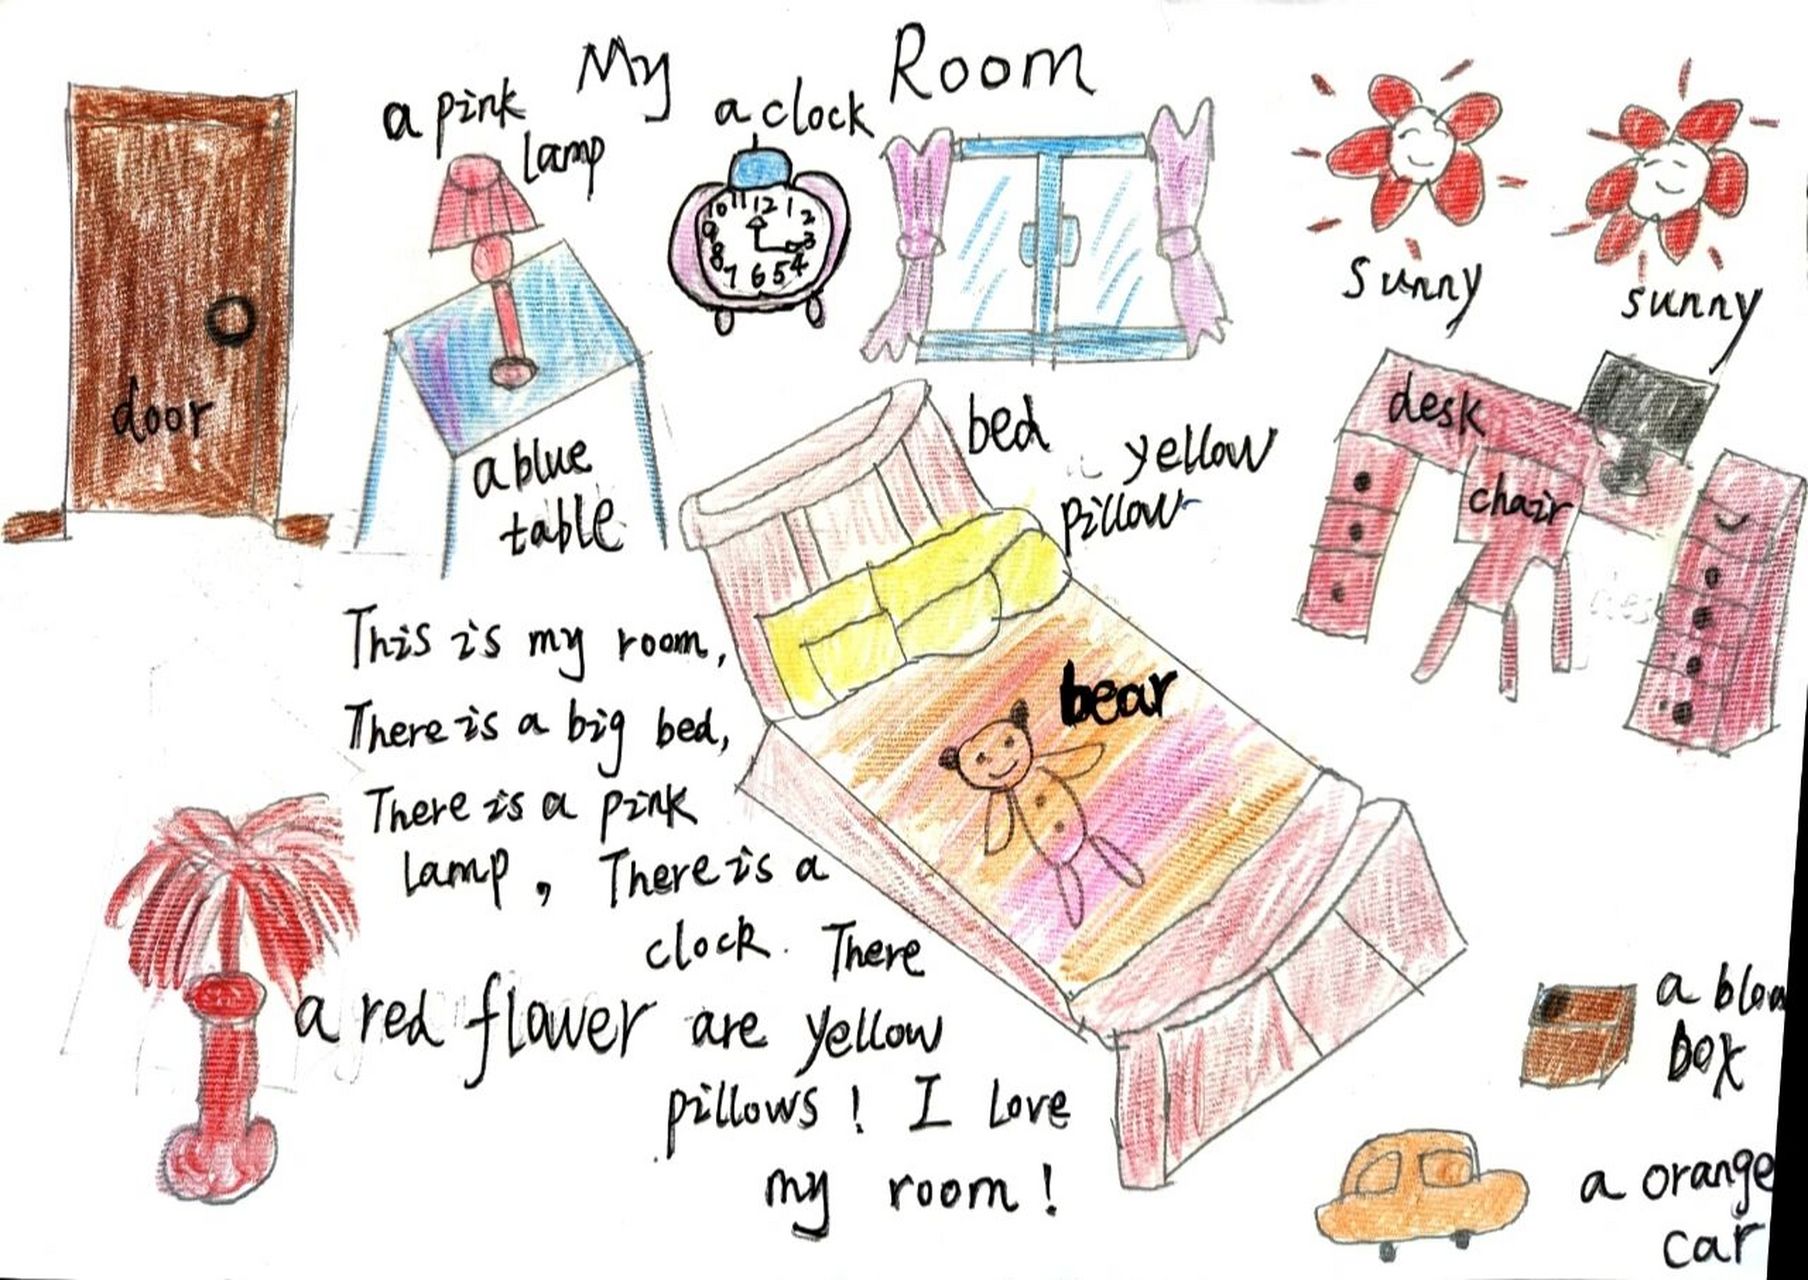 My Room
a pink
lamp
a clock
sunny
sunny
door
a blue
table
10 11 12 1 2 3 4 5 6 7 8 9
bed
yellow
pillow
desk
chair
bear
This is my room,
There is a big bed,
There is a pink
lamp, There is a
clock. There
are yellow
pillows! I Love
my room!
a red flower
a
box
a orange
car